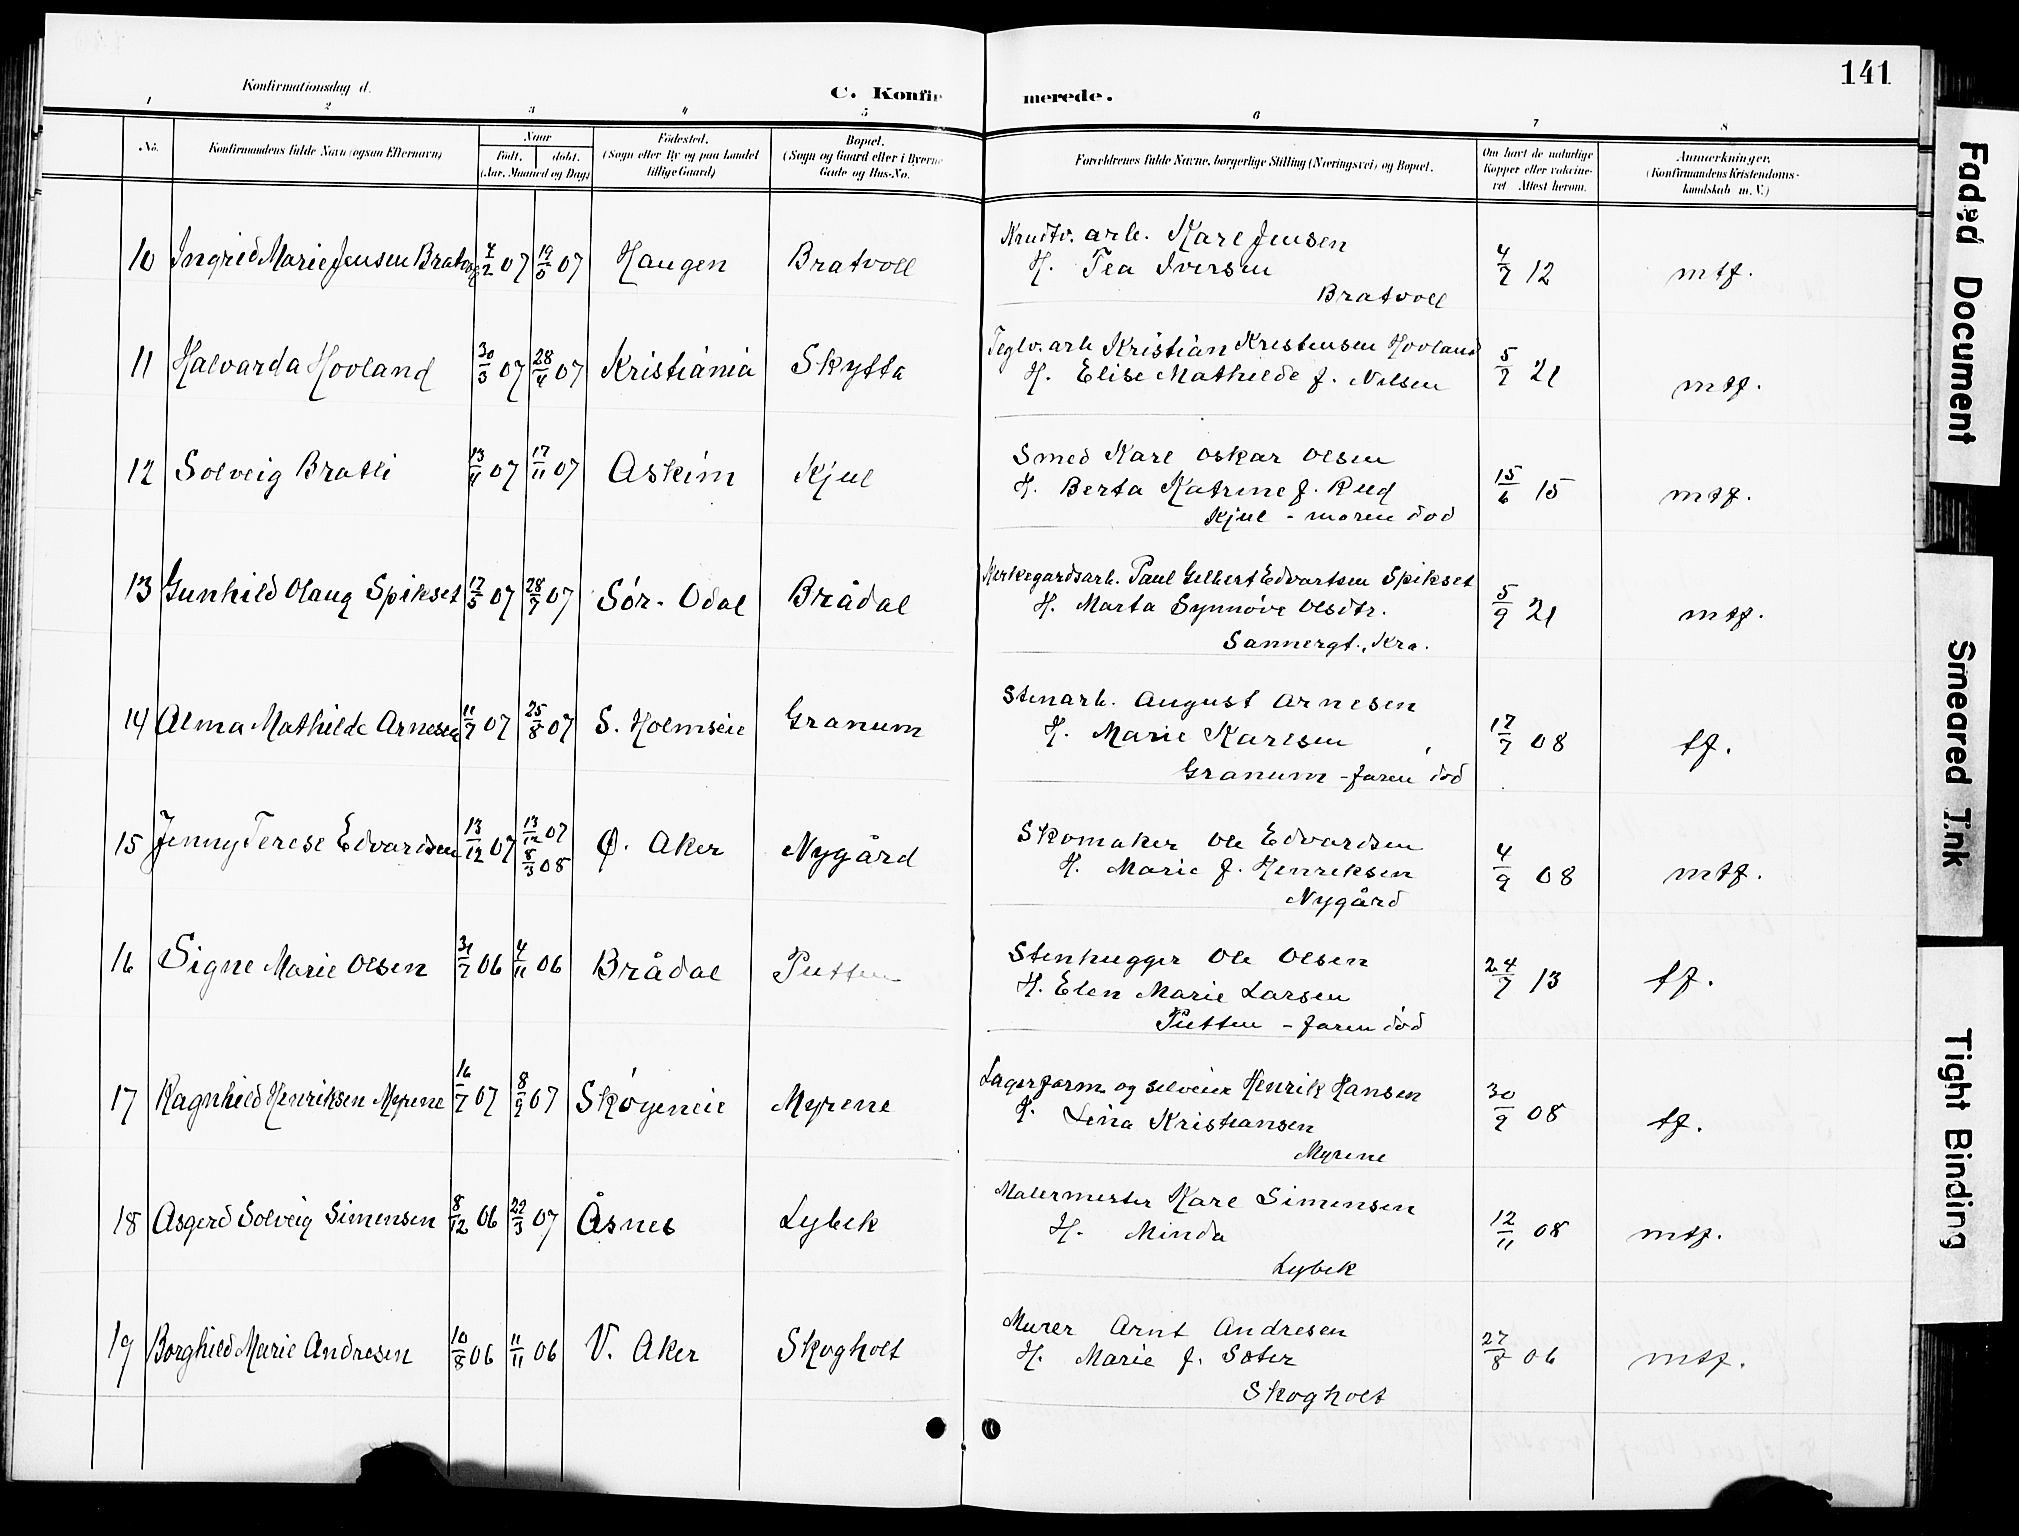 141
Konfirmationsdag d.
C. Konfirmerede.
1 2 3 4 5 6 7 8
No. Konfirmandens fulde Navn (ogsaa Efternavn) Naar Födt. döbt. (Aar, Maaned og Dag) Födested. (Sogn eller By og paa Landet tillige Gaard) Bopæl. (Sogn og Gaard eller i Byerne Gade og Hus-No. Forældrenes fulde Navne, borgerlige Stilling (Næringsvei) og Bopæl. Om havt de naturlige Kopper eller vakcineret Attest herom. Anmærkninger, (Konfirmandens Kristendomskundskab m. V.)
10 Ingrid Marie Jensen 4/2 07 19/5 07 Haugen Bratvoll arb. Karl Jensen
H. Tea Iversen 4/7 12 mtf.
Bratvoll
11 Halvarda Hovland 30/3 07 28/4 07 Kristiania Skytta Teglv. arb Kristian Kristensen Hovland
H. Elise Mathilde f. Nilsen 5/7 21 mtf.
12 Solveig Bratli 13/4 07 17/11 07 Askim Kjul Smed Karl Oskar Olsen
H. Berta Katrine f. Rud 15/6 15 mtf.
Kjul - moren död
13 Gunhild Olaug Spikset 12/5 07 28/7 07 Sör-Odal Brådal Kirkegardsarb. Paul Gilbert Edvartsen Spikset
H. Marta Synnöve Olsdtr. 5/9 21 mtf.
Sannergt., Kra.
14 Alma Mathilde Arnesen 11/7 07 25/8 07 S. Holmseie Granum Stenarb. August Arnesen
H. Marie Karlsen 17/7 08 tf.
Granum - faren död
15 Jenny Terese Edvardsen 13/12 07 13/12 07 8/3 08 Ø. Aker Nygård Skomaker Ole Edvardsen
H. Marie f. Henriksen 4/9 08 mtf.
Nygård
16 Signe Marie Olsen 31/7 06 4/11 06 Brådal Putten Stenhugger Ole Olsen
H. Elen Marie Larsen 24/7 13 tf.
Putten - faren död
17 Ragnhild Henriksen Myrene 16/7 07 8/9 07 Skøyeneie Myrene Lagerform og selveier Henrik Hansen
H. Lina Kristiansen 30/9 08 tf.
Myrene
18 Asgerd Solveig Simensen 8/12 06 22/3 07 Åsnes Lybek Malermester Karl Simensen
H. Minda 12/11 08 mtf.
Lybek
19 Borghild Marie Andresen 10/8 06 11/11 06 V. Aker Skogholt Murer Arnt Andresen
H. Marie f. Soter 27/8 06 mtf.
Skogholt
Faded Document
Smeared Ink
Tight Binding